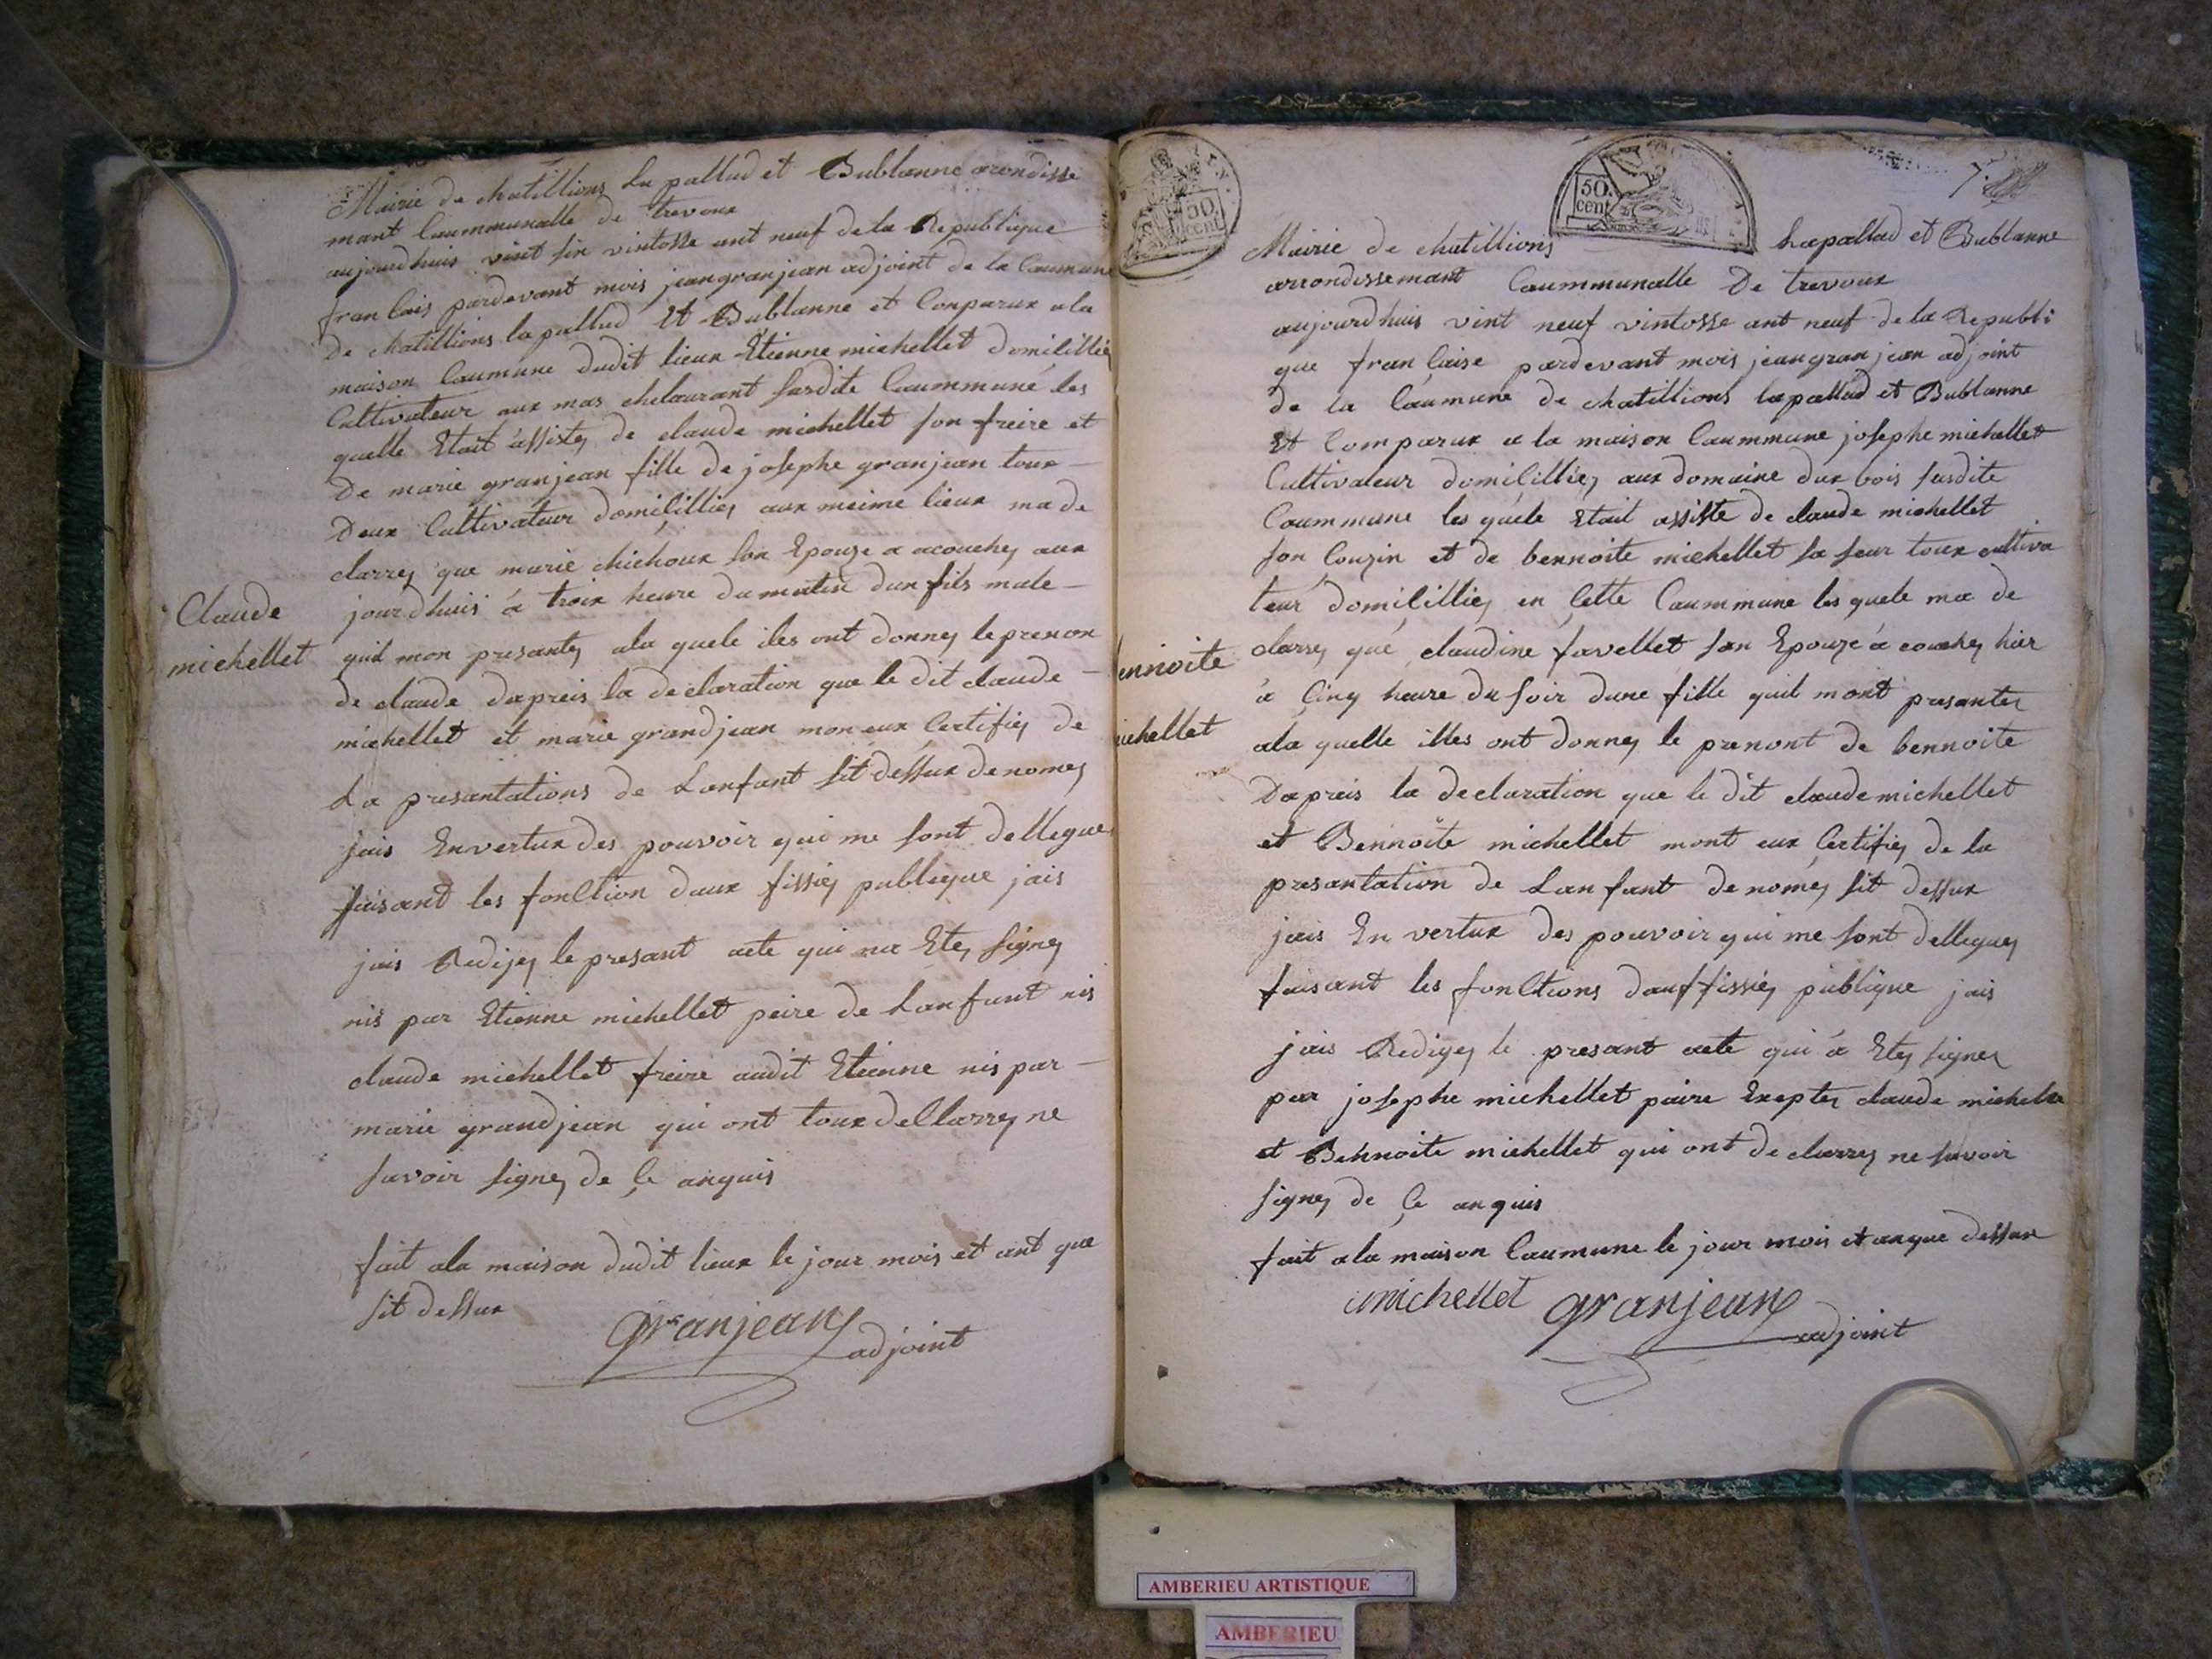 Mairie de chatillions La pallud et Bublanne arondisse
mant Caummunalle de trevoux
aujourdhuis vint sin vintosse ant neuf de la Republique
francais pardevant mois jean granjean adjoint de la Caumune
De chatillions lapallud Et Bublanne et Conparux a la
maison Caumune dudit lieux Etienne michellet domicillié
Cultivateur aux mas chelaurant susdite Caummune les
quelle Etait assistey de claude michellet son freire et
De marie granjean fille de josephe granjean toux
Deux Cultivateur domicilliey aux meime lieux ma de
clarrey que marie chichoux son Epouze a acouchey aux
jourdhuis a troix heure du matin dun fils male
Claude
michellet
quil mon presantey ala quele iles ont donney le prenon
de claude dapreis la declaration que le dit claude
michellet et marie grandjean mon eux Certifiey de
La presantations de Lanfant sit dessux denomey
jais En vertux des pouvoir qui me sont delleguey
faisant les fonCtion daux fissiey publique jais
jais Redijey le presant acte qui na Etey signey
nis par Etienne michellet peire de Lanfant nis
claude michellet freire audit Etienne nis par
marie grandjean qui ont toux deClarrey ne
savoir signey de Çe anquis
fait ala maison dudit lieux le jour mois et ant que
sit dessux
granjean
adjoint
50
cent
50
cent
7
Mairie de chatillions Lapallud et Bublanne
arrondissemant Caummunalle De trevoux
aujourdhuis vint neuf vintosse ant neuf de la Republi
que francaise pardevant mois jean granjean adjoint
de la Caumune de chatillions lapallud et Bublanne
Et Comparux a la maison Caummune josephe michellet
Cultivateur domicilliey aux domaine dux bois susdite
Caummune les quele Etait assiste de claude michellet
son Couzin et de bennoite michellet sa seur toux cultiva
teur domicilliey en Cette Caummune les quele ma de
clarrey que claudine favellet son Epouze a couchey hier
ennoite
a Çinq heure du soir dune fille quil mont presantey
ichellet
ala quelle illes ont donney le prenont de bennoite
Dapreis la declaration que le dit claude michellet
et Bennoite michellet mont eux Certifiey de la
presantation de Lanfant denomey sit dessux
jais En vertux des pouvoir qui me sont delleguey
faisant les fonCtions dauffissiey publique jais
jais Redigey le presant acte qui a Etey signey
par josephe michellet paire Exeptey claude michelle
et Bennoite michellet qui ont declarrey ne savoir
signey de Çe anquis
fait ala maison Caumune le jour mois et anque dessux
michellet granjean
adjoint
AMBERIEU ARTISTIQUE
AMBERIEU